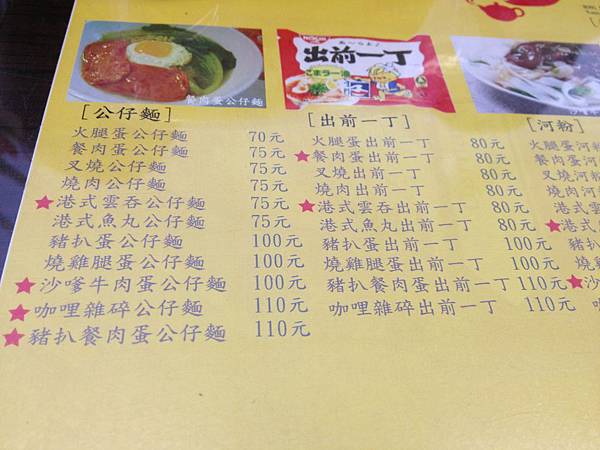 餐肉蛋公仔麵
NISSIN
出前一丁
ごまラー油
[公仔麵]
火腿蛋公仔麵 70元
餐肉蛋公仔麵 75元
叉燒公仔麵 75元
燒肉公仔麵 75元
★港式雲吞公仔麵 75元
港式魚丸公仔麵 75元
豬扒蛋公仔麵 100元
燒雞腿蛋公仔麵 100元
★沙嗲牛肉蛋公仔麵 100元
★咖哩雜碎公仔麵 110元
★豬扒餐肉蛋公仔麵 110元
[出前一丁]
火腿蛋出前一丁 80元
★餐肉蛋出前一丁 80元
叉燒出前一丁 80元
燒肉出前一丁 80元
★港式雲吞出前一丁 80元
港式魚丸出前一丁 80元
豬扒蛋出前一丁 100元
燒雞腿蛋出前一丁 100元
豬扒餐肉蛋出前一丁 110元
咖哩雜碎出前一丁 110元
[河粉]
火腿蛋河粉
餐肉蛋河
叉燒河粉
燒肉河
港式雲
★港式
豬扒
燒
★沙